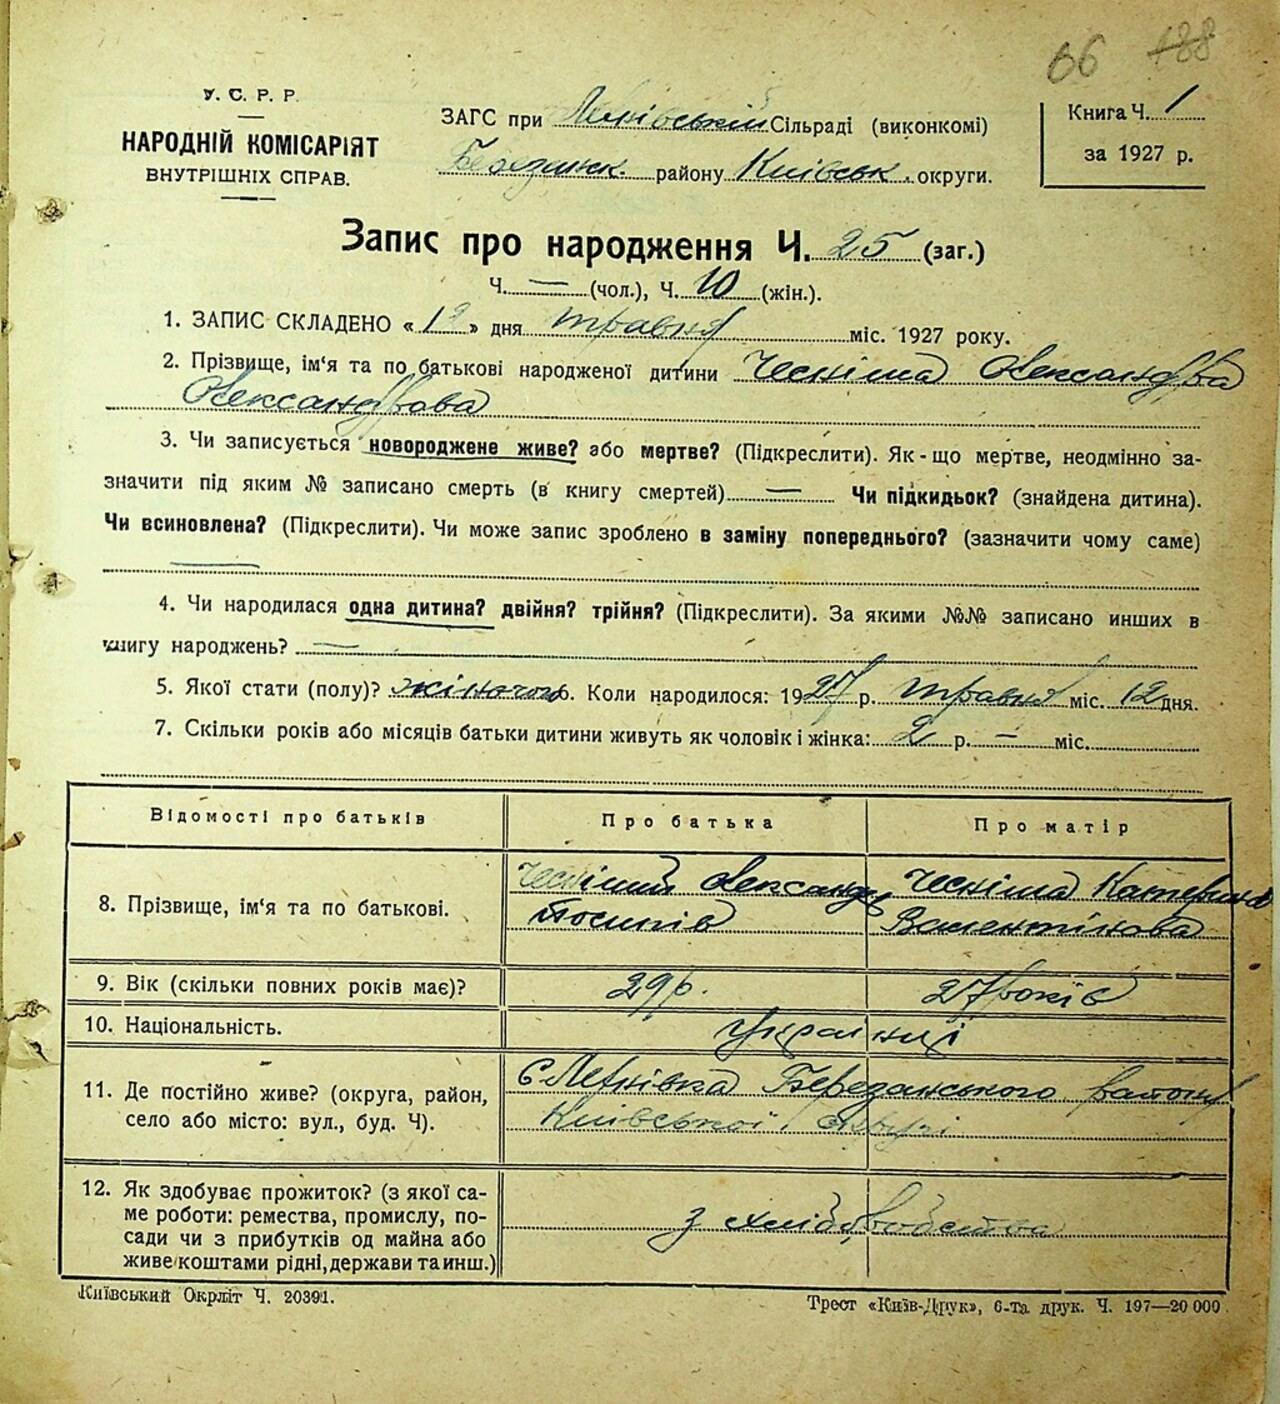 66 188
У. С. Р. Р.
НАРОДНІЙ КОМІСАРІЯТ
ВНУТРІШНІХ СПРАВ.
ЗАГС при Лехнівській Сільраді (виконкомі)
Березанськ. району Київськ. округи.
Книга Ч. 1
за 1927 р.
Запис про народження Ч. 25 (заг.)
Ч. — (чол.), Ч. 10 (жін.).
1. ЗАПИС СКЛАДЕНО « » дня травня міс. 1927 року.
2. Прізвище, ім'я та по батькові народженої дитини Олександра
Олександрова
3. Чи записується новороджене живе? або мертве? (Підкреслити). Як-що мертве, неодмінно за-
значити під яким № записано смерть (в книгу смертей) — Чи підкидьок? (знайдена дитина).
Чи всиновлена? (Підкреслити). Чи може запис зроблено в заміну попереднього? (зазначити чому саме)
—
4. Чи народилася одна дитина? двійня? трійня? (Підкреслити). За якими №№ записано инших в
книгу народжень? —
5. Якої стати (полу)? жіночої 6. Коли народилося: 1927 р. травня міс. 12 дня.
7. Скільки років або місяців батьки дитини живуть як чоловік і жінка: 2 р. — міс.
Відомості про батьків Про батька Про матір
8. Прізвище, ім'я та по батькові. Олександр Йосипів Катерина Валентинова
9. Вік (скільки повних років має)? 29 р. 27 років
10. Національність. Українці
11. Де постійно живе? (округа, район, с Лехнівка Березанського району
село або місто: вул., буд. Ч). Київської округи
12. Як здобуває прожиток? (з якої са-
ме роботи: ремества, промислу, по- з хліборобства
сади чи з прибутків од майна або
живе коштами рідні, держави та инш.)
Київський Окрліт Ч. 20391.
Трест «Київ-Друк», 6-та друк. Ч. 197—20 000